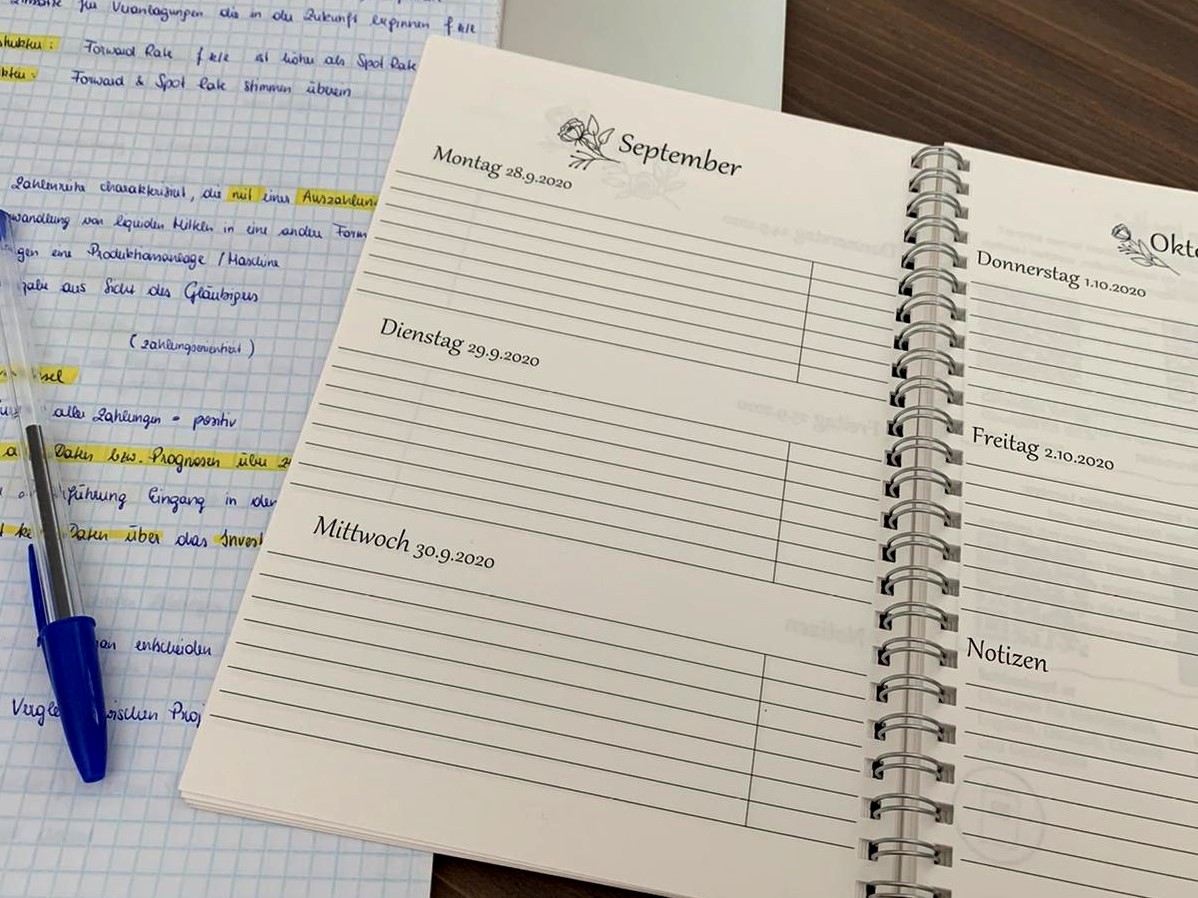 für Veranlagungen die in der Zukunft beginnen f k/t
Forward Rate f k/t ist höher als Spot Rate
Forward & Spot Rate stimmen überein
Zahlenreihe charakterisiert, die mit einer Auszahlun
wandlung von liquiden Mitteln in eine andere Form
gen eine Produktionsanlage / Maschine
gabe aus Sicht des Gläubigers
(zahlungsorientiert)
sel
aller Zahlungen = positiv
a Daten bzw. Prognosen über
führung Eingang in den
Daten über das Invest
an entscheiden
Vergle ischen Proj
September
Montag 28.9.2020
Dienstag 29.9.2020
Mittwoch 30.9.2020
Okto
Donnerstag 1.10.2020
Freitag 2.10.2020
Notizen